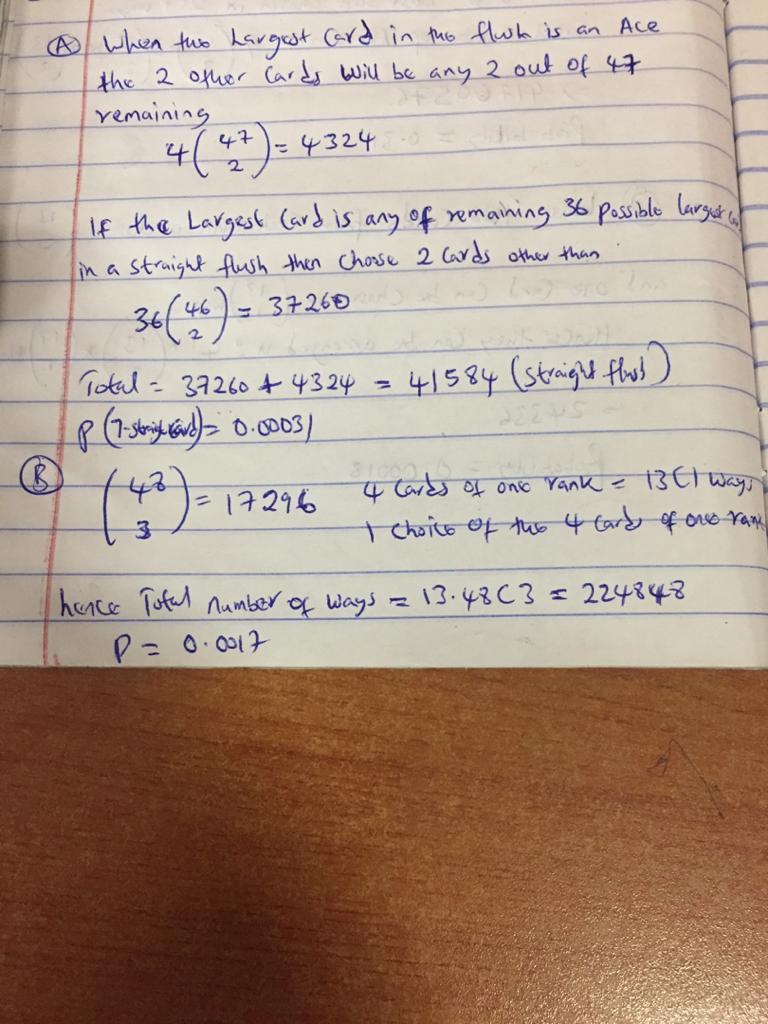 A When the Largest Card in the flush is an Ace
the 2 other Cards will be any 2 out of 47
remaining
4(47 2) = 4324
if the Largest Card is any of remaining 36 possible largest
in a straight flush then choose 2 Cards other than
36(46 2) = 37260
Total = 37260 + 4324 = 41584 (straight flush)
P (7-straight) = 0.00031
B (48 3) = 17296 4 Cards of one rank = 13C1 ways
1 choice of the 4 cards of one rank
hence Total number of ways = 13.48C3 = 224848
P = 0.0017